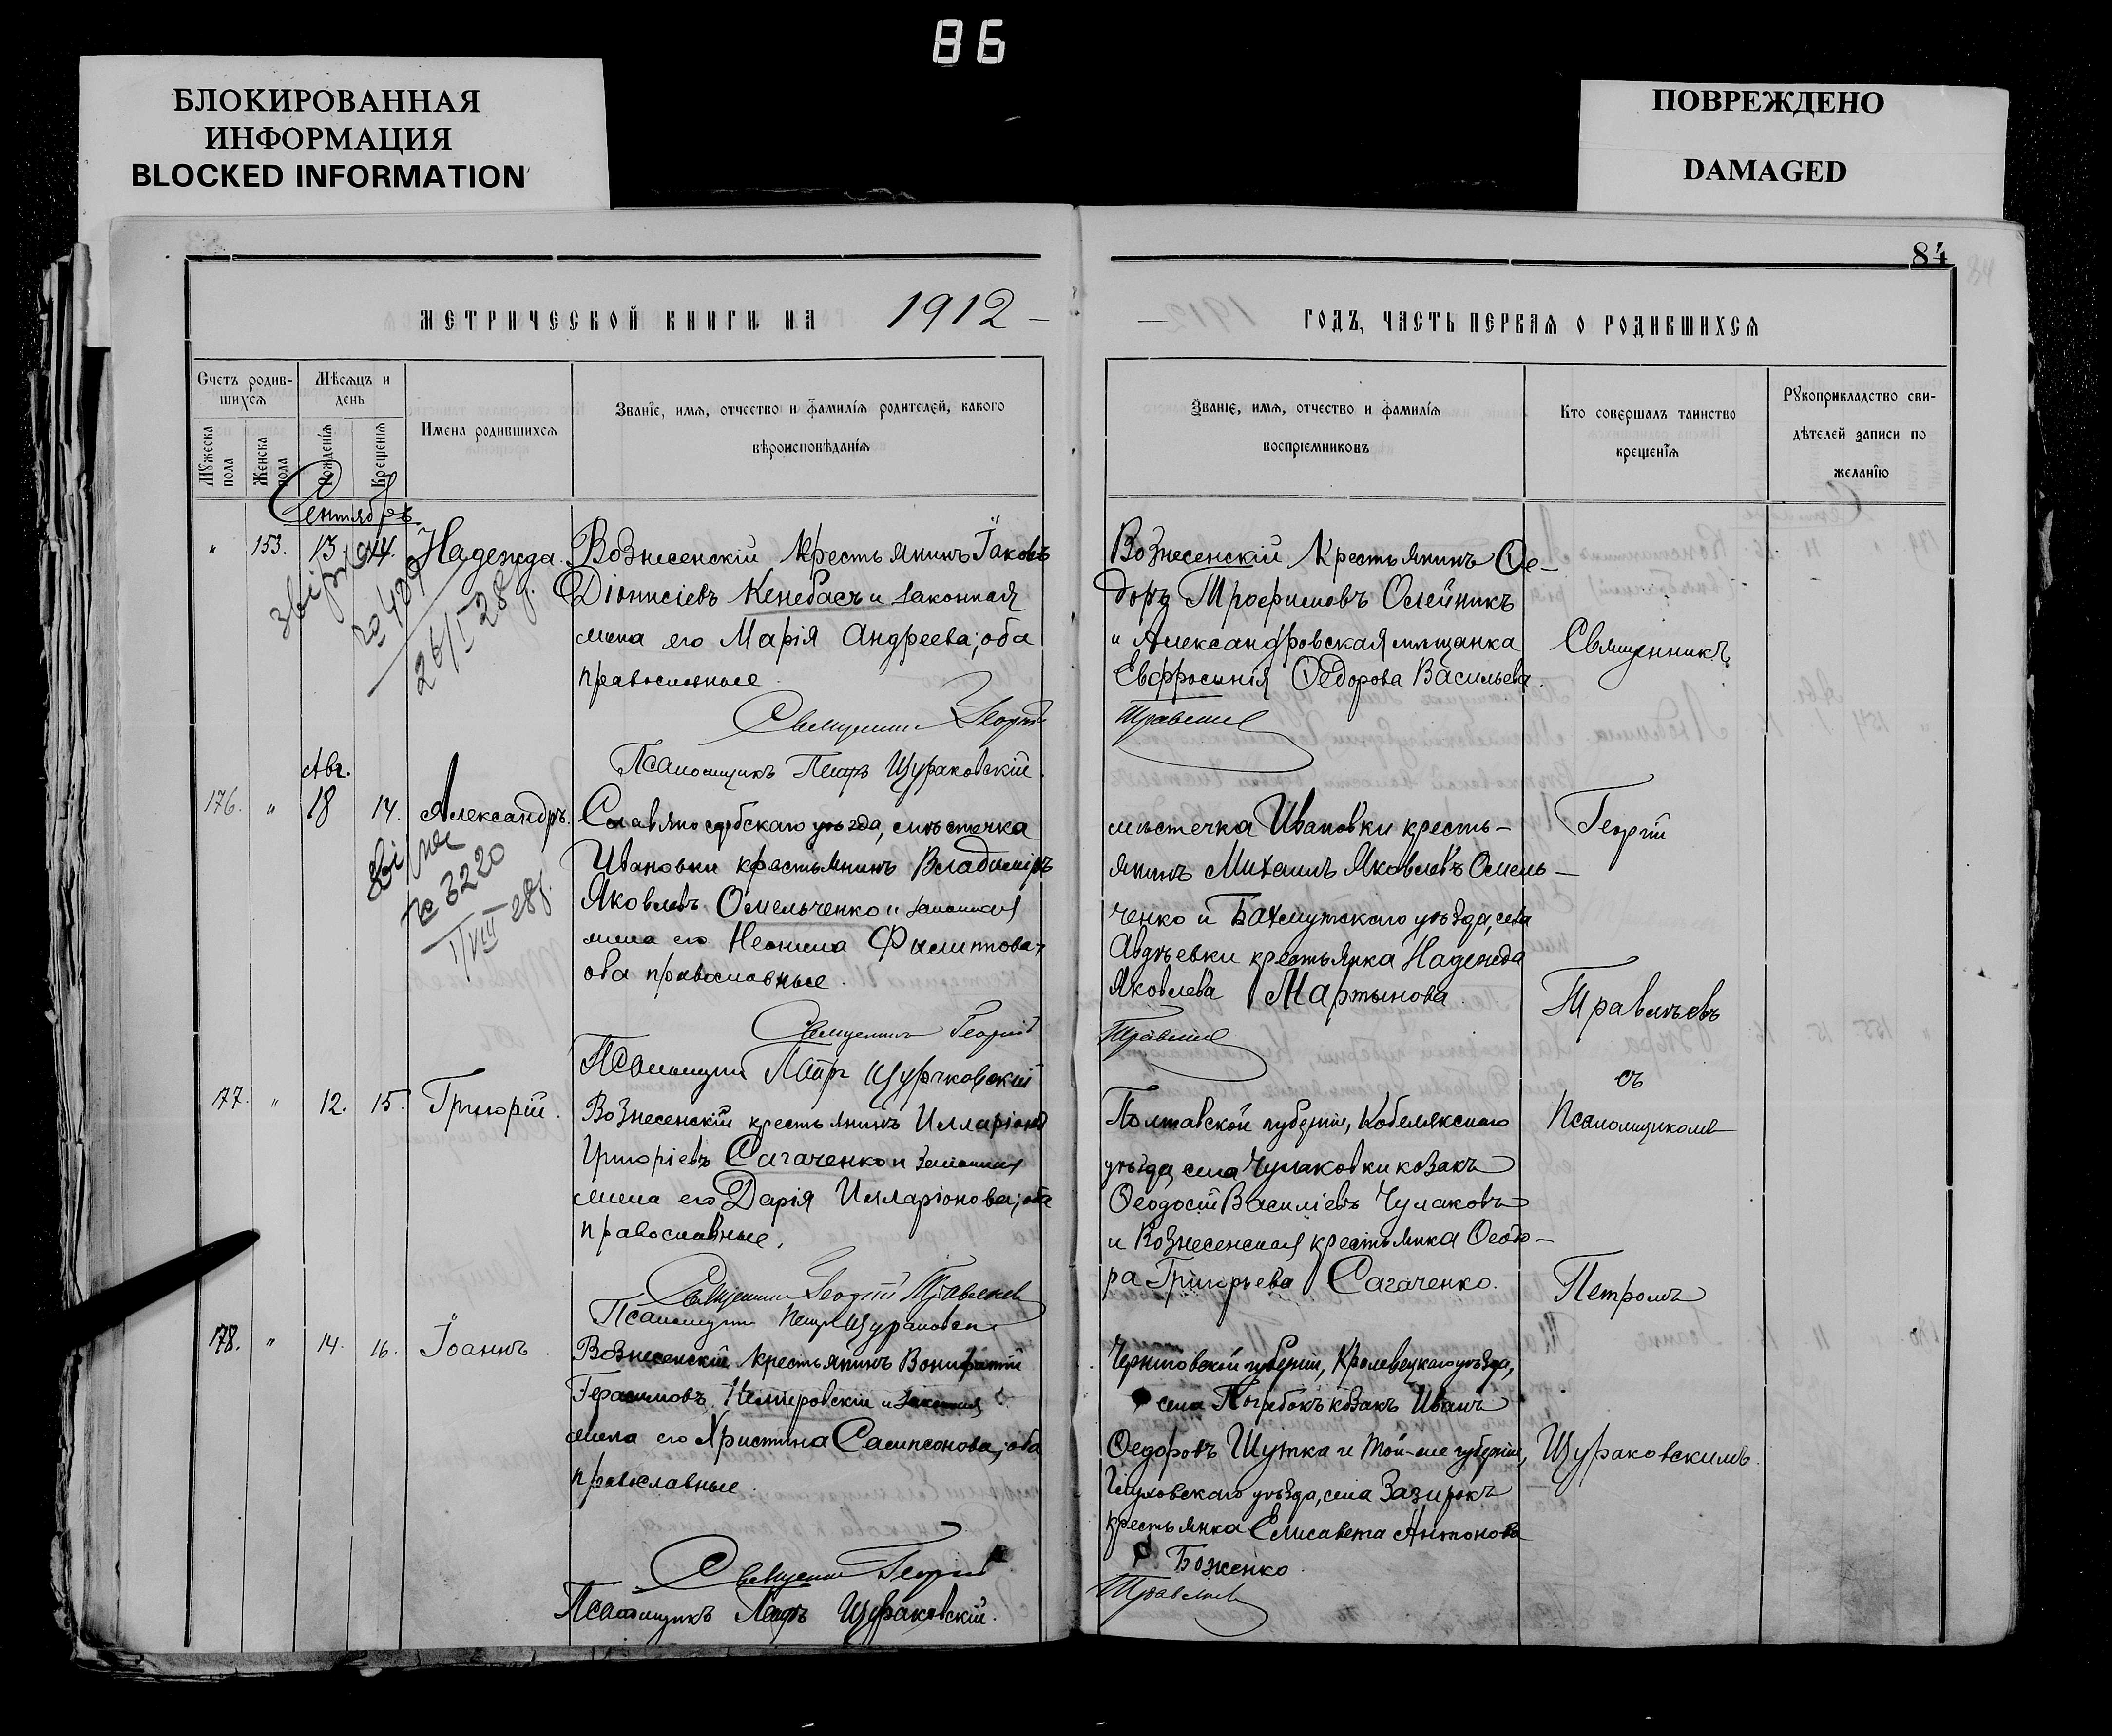 86
БЛОКИРОВАННАЯ
ИНФОРМАЦИЯ
BLOCKED INFORMATION
ПОВРЕЖДЕНО
DAMAGED
84
МЕТРИЧЕСКОЙ КНИГИ НА 1912
ГОДЪ, ЧАСТЬ ПЕРВАЯ О РОДИВШИХСЯ
Счетъ родив-
шихся
Мужеска пола
Женска пола
Мѣсяцъ и
день
Рожденія
Крещенія
Имена родившихся
Званіе, имя, отчество и фамилія родителей, какого
вѣроисповѣданія
Званіе, имя, отчество и фамилія
воспріемниковъ
Кто совершалъ таинство
крещенія
Рукоприкладство сви-
дѣтелей записи по
желанію
Сентябрь
" 153. 13 14. Надежда.
№ 489
26/I 28 г.
Вознесенскій крестьянинъ Іаковъ
Діонисіевъ Кенебасъ и законная
жена его Марія Андреева; оба
православные.
Священникъ Георгій
Псаломщикъ Петръ Щураковскій.
Вознесенскій крестьянинъ Ѳе-
доръ Трофимовъ Олейникъ
и Александровская мѣщанка
Евфросинія Ѳедорова Васильева.
Травлѣевъ
Авг.
176. " 18 14. Александръ.
№ 3220
1/VIII 28 г.
Славяносербскаго уѣзда, мѣстечка
Ивановки крестьянинъ Владиміръ
Яковлевъ Омельченко и законная
жена его Неонила Филиппова;
оба православные.
Священникъ Георгій
Псаломщикъ Петръ Щураковскій
мѣстечка Ивановки кресть-
янинъ Михаилъ Яковлевъ Омель-
ченко и Бахмутскаго уѣзда, села
Авдѣевки крестьянка Надежда
Яковлева Мартынова.
177. " 12. 15. Григорій.
Вознесенскій крестьянинъ Илларіонъ
Григоріевъ Сагаченко и законная
жена его Дарія Илларіонова; оба
православные.
Священникъ Георгій
Псаломщикъ Петръ Щураковскій
Полтавской губерніи, Кобелякскаго
уѣзда, села Чумаковки козакъ
Ѳеодосій Василіевъ Чумаковъ
и Вознесенская крестьянка Ѳеодо-
ра Григорьева Сагаченко.
178. " 14. 16. Іоаннъ.
Вознесенскій крестьянинъ Вонифатій
Герасимовъ Немировскій и законная
жена его Христина Сампсонова; оба
православные.
Священникъ Георгій
Псаломщикъ Петръ Щураковскій.
Черниговской губерніи, Кролевецкаго уѣзда,
села Погребокъ козакъ Иванъ
Ѳедоровъ Шутка и той-же губерніи,
Глуховскаго уѣзда, села Зазирокъ
крестьянка Елисавета Антонова
Боженко.
Священникъ
Георгій
Травлѣевъ
съ
Псаломщикомъ
Петромъ
Щураковскимъ.